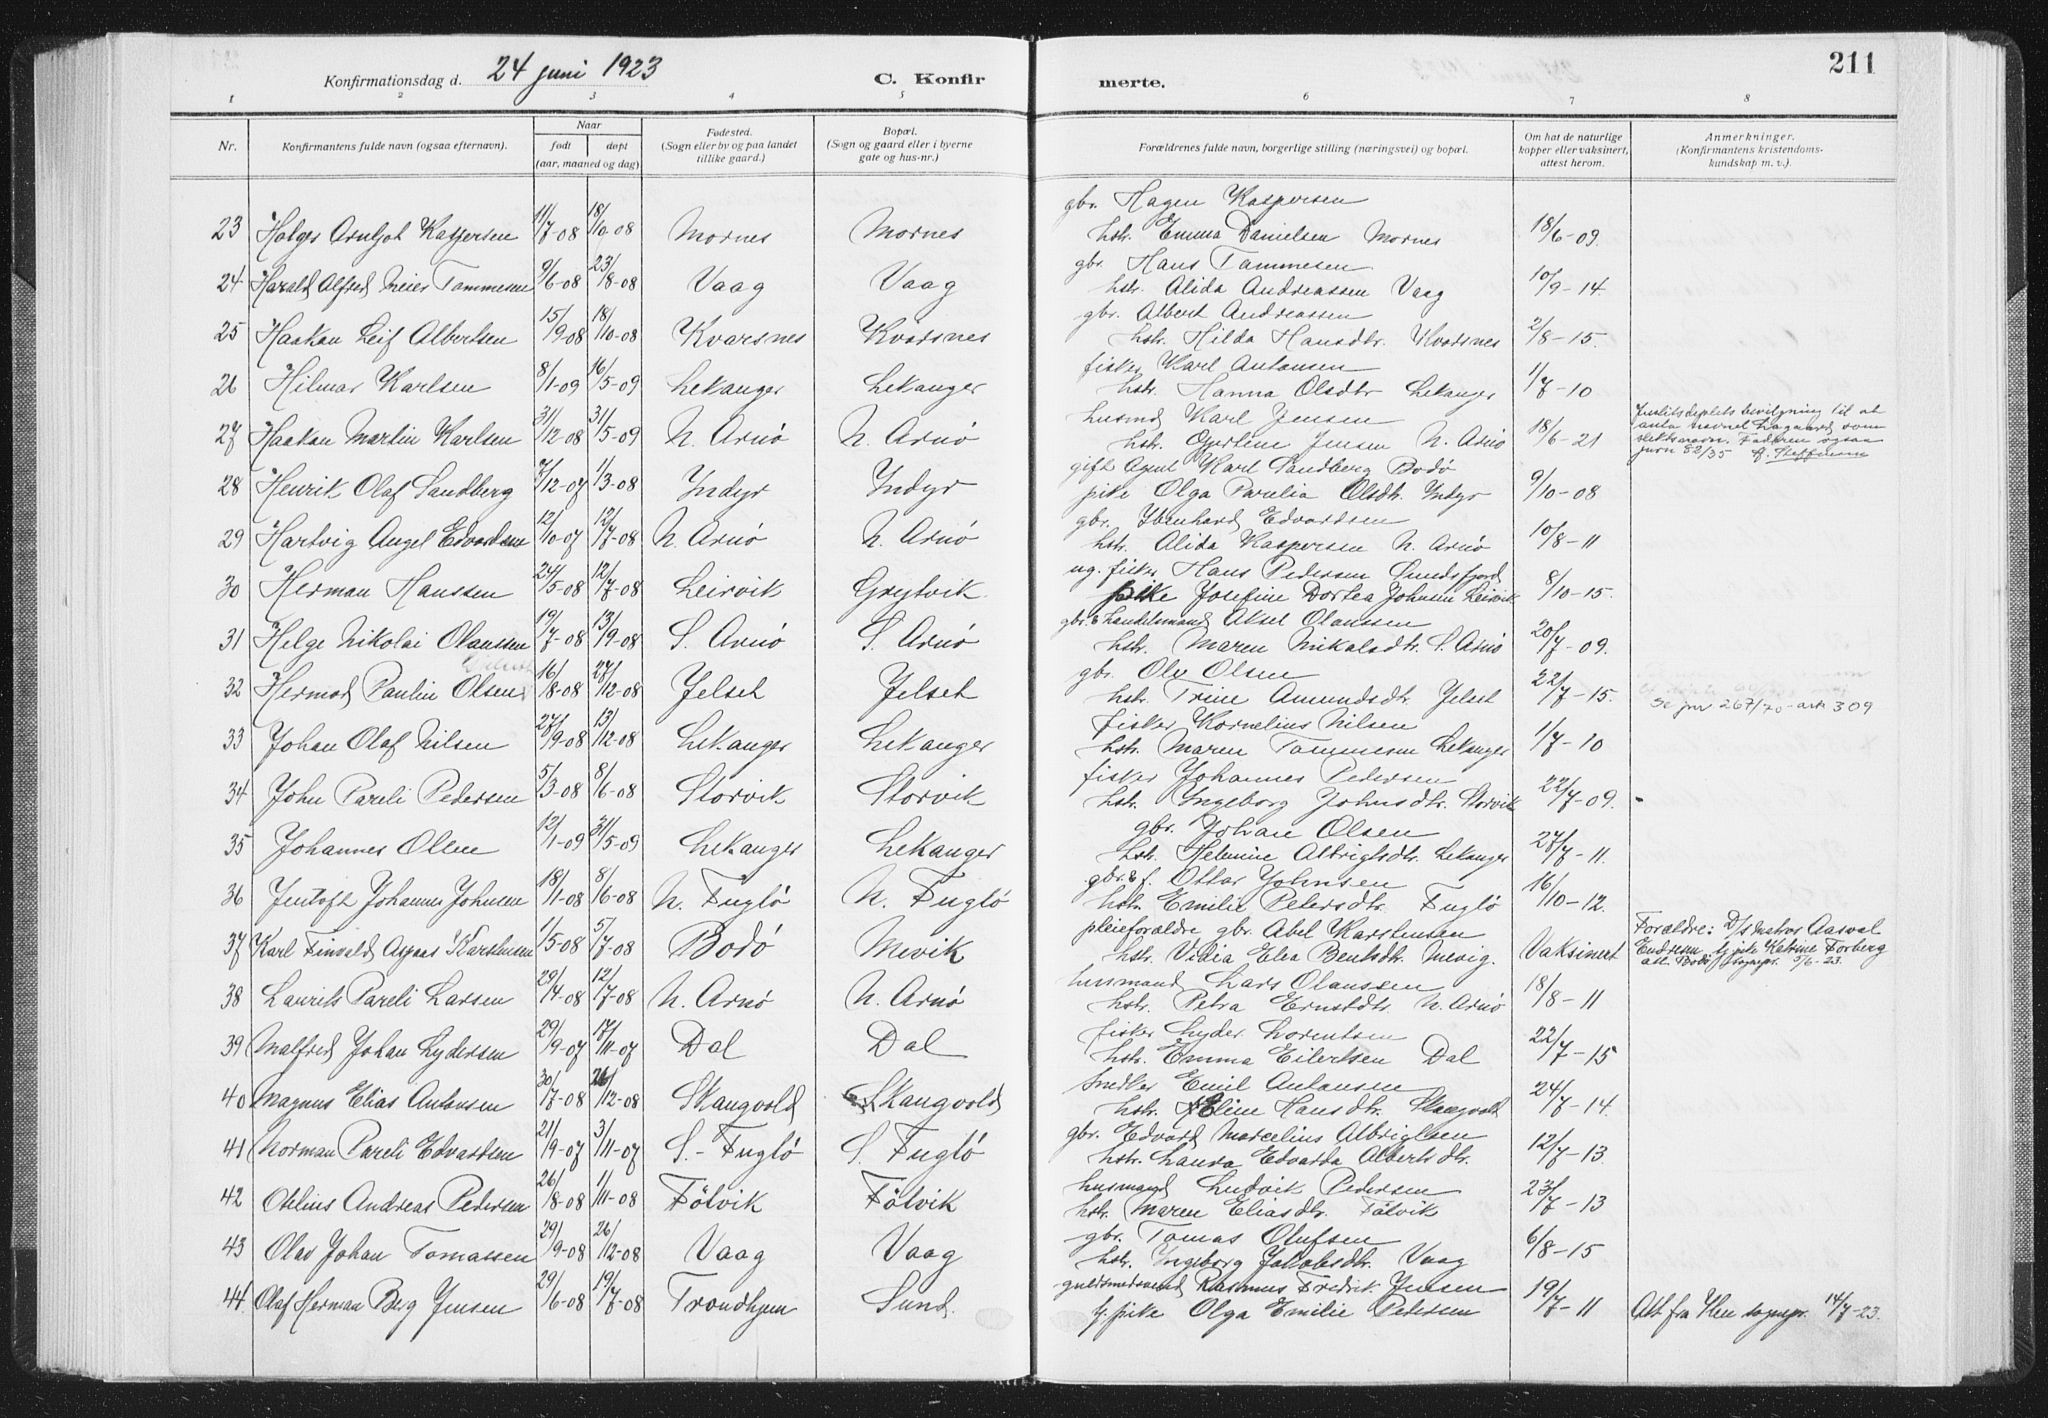 Konfirmationsdag d. 24 juni 1923
C. Konfir
merte.
211
1 2 3 4 5 6 7 8
Nr.
Konfirmantens fulde navn (ogsaa efternavn).
Naar
født døpt
(aar, maaned og dag)
Fødested.
(Sogn eller by og paa landet
tillike gaard.)
Bopæl.
(Sogn og gaard eller i byerne
gate og hus-nr.)
Forældrenes fulde navn, borgerlige stilling (næringsvei) og bopæl.
Om hat de naturlige
kopper eller vaksinert,
attest herom.
Anmerkninger.
(Konfirmantens kristendoms-
kundskap m. v.).
gbr. Hagen Kaspersen
23 Holger Arnljot Kaspersen 11/7-08 18/10-08 Mornes Mornes hstr. Emma Danielsen Mornes 18/6-09.
gbr. Hans Tammesen
24 Harald Alfred Meier Tammesen 9/6-08 23/8-08 Vaag Vaag hstr. Alida Andreassen Vaag 10/9-14.
gbr. Albert Andreassen
25 Haakon Leif Albertsen 15/9-08 18/10-08 Kvarsnes Kvarsnes hstr. Hilda Hansdtr. Kvarsnes 2/8-15.
fisker Karl Antonsen
26 Hilmar Karlsen 8/1-09 16/5-09 Lekanger Lekanger hstr. Hanna Olsdtr Lekanger 1/7-10
husmd Karl Jensen
27 Haakon Martin Karlsen 31/12-08 31/5-09 N. Arnö N. Arnö hstr. Jensen N. Arnö 18/6-21
Justitsdeptets bevilgning til at
anta navnet som
slektsnavn. Faderen ogsaa
jurn 52/35
gift Agent Karl Sandberg Bodö
28 Henrik Olaf Sandberg 2/12-07 1/3-08 Indyr Indyr pike Olga Parelia Olsdtr. Indyr 9/10-08
gbr. Edvardsen
29 Hartvig Angel Edvardsen 12/10-07 12/7-08 N. Arnö N. Arnö hstr. Alida Kaspersen N. Arnö 10/8-11
ug. fisker Hans Pedersen Sundsfjord
30 Herman Hanssen 24/5-08 12/7-08 Leirvik Grytvik pike Josefine Dortea Johnsen Leirvik 8/10-15.
gbr. & handelsmand Aksel Olaussen
31 Helge Nikolai Olaussen 19/7-08 13/9-08 S. Arnö S. Arnö hstr. Maren Nikolaidtr. S. Arnö 20/7-09.
gbr. Ole Olsen
32 Hermod Paulin Olsen 16/8-08 27/12-08 Jelset Jelset hstr. Trine Amundsdtr Jelset 22/7-15. Se jnr. 267/70 - ark 309
fisker Kornelius Nilsen
33 Johan Olaf Nilsen 27/9-08 13/12-08 Lekanger Lekanger hstr. Maren Tammesen Lekanger 1/7-10
fisker Johannes Pedersen
34 John Pareli Pedersen 5/3-08 8/6-08 Storvik Storvik hstr. Ingeborg Johnsdtr. Storvik 22/7-09.
gbr. Johan Olsen
35 Johannes Olsen 12/1-09 31/5-09 Lekanger Lekanger hstr. Helmine Albrigtsdtr. Lekanger 27/7-11.
gbr. & f. Ottar Johnsen
36 Jentoft Johannes Johnsen 18/1-08 8/6-08 N. Fuglö N. Fuglö hstr. Emilie Petersdtr. Fuglö 16/10-12.
pleieforældre gbr. Abel Karstensen
37 Karl Finvald Karstensen 1/5-08 5/7-08 Bodö Mevik hstr. Vidia Elea Bentsdtr. Mevig. Vaksineret
Forældre: D/s Matros Aasval
Endresen & pike Katrine Forberg
att. Bodö sognepr. 5/6-23.
husmand Lars Olaussen
38 Laurits Pareli Larsen 29/4-08 12/7-08 N. Arnö N. Arnö hstr. Petra Ernstdtr. N. Arnö 18/8-11
fisker Lyder Lorentsen
39 Malfred Johan Lydersen 29/9-07 17/11-07 Dal Dal hstr. Emma Eilertsen Dal 22/7-15
Snedker Emil Antonsen
40 Magnus Elias Antonsen 30/7-08 26/12-08 Skangvold Skangvold hstr. Eline Hansdtr. Skangvold 24/7-14.
gbr. Edvard Marcelius Albrigtsen
41 Norman Pareli Edvardsen 21/9-07 3/11-07 S.-Fuglö S. Fuglö hstr. Laura Edvarda Albertsdtr. 12/7-13
husmand Ludvik Pedersen
42 Otelius Andreas Pedersen 26/8-08 1/11-08 Fölvik Fölvik hstr. Maren Eliasdtr. Fölvik 23/7-13
gbr. Tomas Olufsen
43 Olav Johan Tomassen 29/9-08 26/12-08 Vaag Vaag hstr. Ingeborg Jakobsdtr. Vaag 6/8-15
guldsmedsvend Rasmus Fredrik Jensen
44. Olaf Herman Berg Jensen 29/6-08 19/7-08 Trondhjem Sund. g. pike Olga Emilie Petersen 19/7-11 Att. fra Ilen sognepr. 14/7-23.